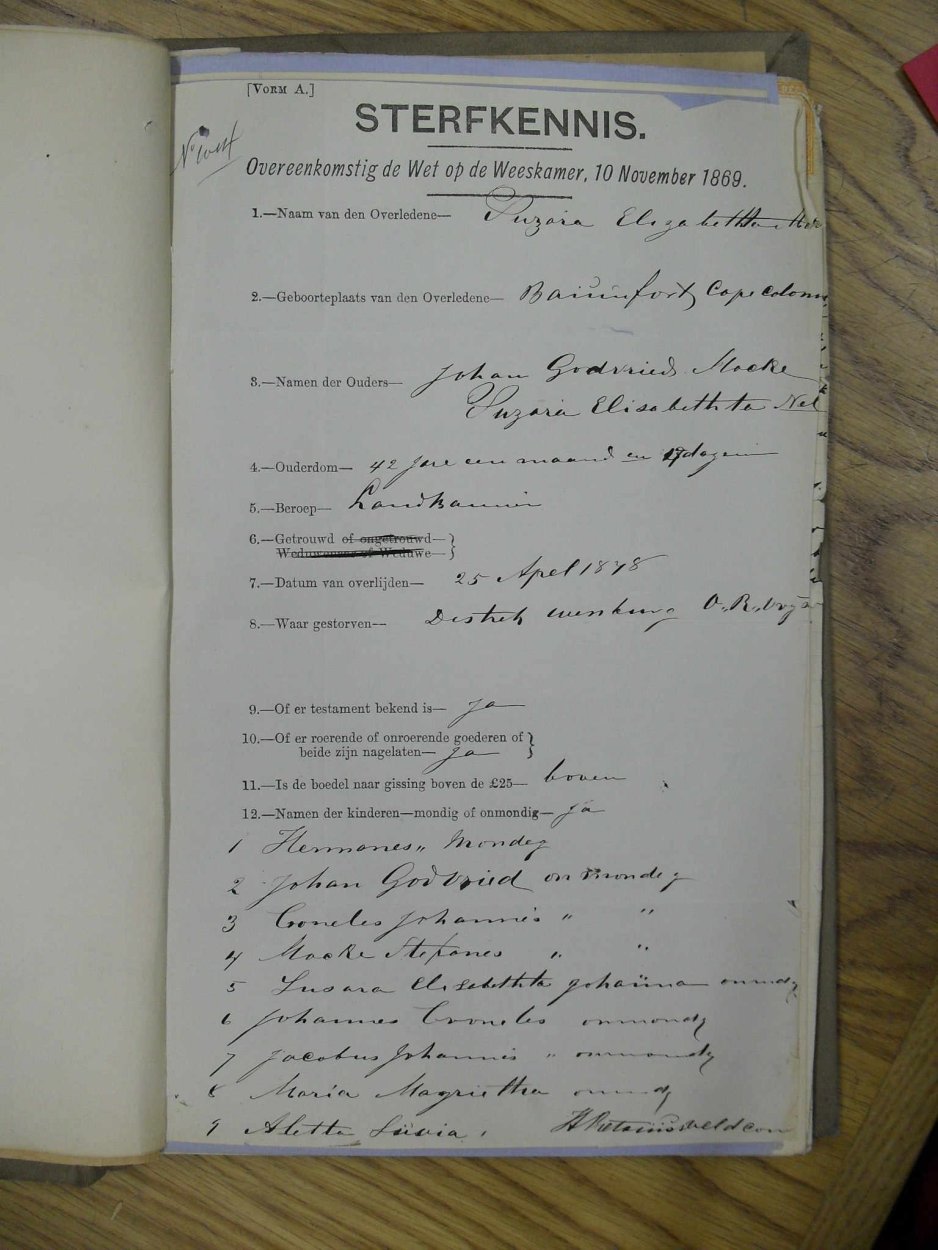 [VORM A.]
STERFKENNIS.
Overeenkomstig de Wet op de Weeskamer, 10 November 1869.
1.—Naam van den Overledene— Suzara Elizabethta
2.—Geboorteplaats van den Overledene— Cape Colony
3.—Namen der Ouders— Johan Godvried Macke
Suzara Elisabethta Nel
4.—Ouderdom— 42 Jare een maand en 17 dagen
5.—Beroep—
6.—Getrouwd of ongetrouwd—
Weduwenaar of Weduwe—
7.—Datum van overlijden— 25 Apel 1878
8.—Waar gestorven— O.R.
9.—Of er testament bekend is— Ja
10.—Of er roerende of onroerende goederen of
beide zijn nagelaten— Ja
11.—Is de boedel naar gissing boven de £25— boven
12.—Namen der kinderen—mondig of onmondig— Ja
1 Hermanes „ Mondeg
2 Johan Godvried onmondeg
3 Croneles Johannes „ „
4 Macke Stefanes „ „
5 Susara Elisebethta Johanna
6 Johannes Croneles onmondg
7 Jacobus Johannis „ onmondg
8 Maria Magrietha
9 Aletta